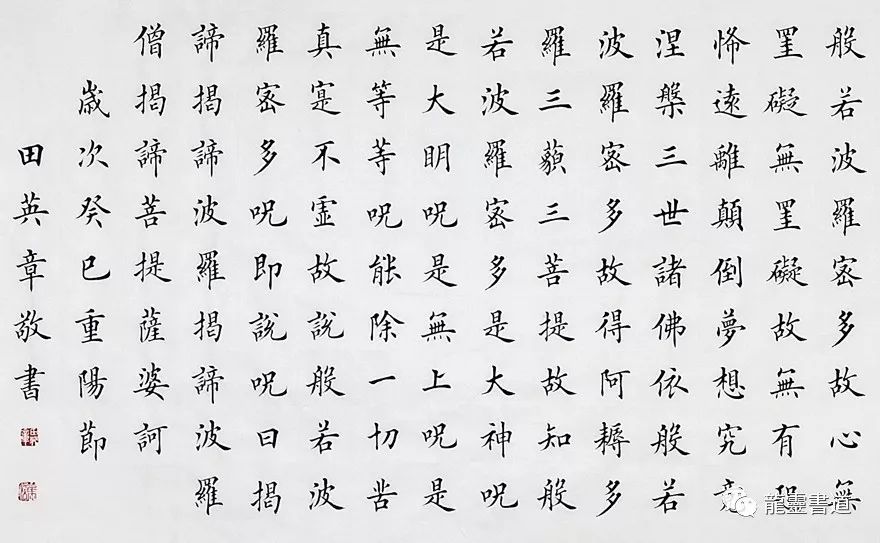 般若波羅密多故心無
罣礙無罣礙故無有恐
怖遠離顛倒夢想究竟
涅槃三世諸佛依般若
波羅密多故得阿耨多
羅三藐三菩提故知般
若波羅密多是大神呪
是大明呪是無上呪是
無等等呪能除一切苦
真寔不虛故說般若波
羅密多呪即說呪曰揭
諦揭諦波羅揭諦波羅
僧揭諦菩提薩婆訶
歲次癸巳重陽節
田英章敬書
龍靈書道